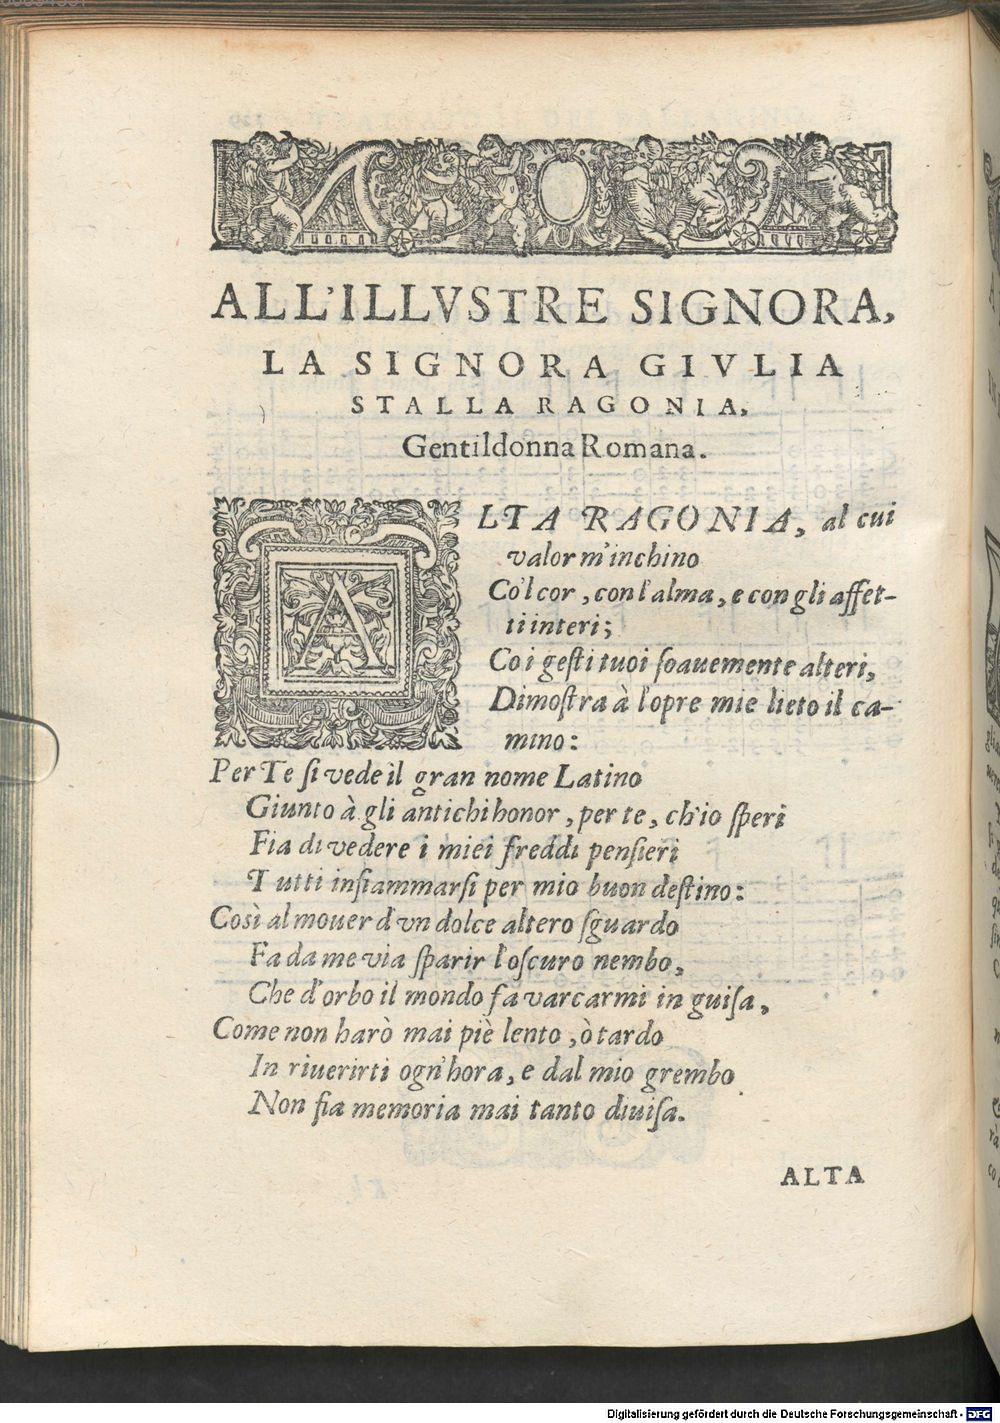 ALL'ILLVSTRE SIGNORA,
LA SIGNORA GIVLIA
STALLA RAGONIA,
Gentildonna Romana.
ALTA RAGONIA, al cui
valor m'inchino
Co'l cor, con l'alma, e con gli affet-
ti interi;
Co i gesti tuoi soauemente alteri,
Dimostra à l'opre mie lieto il ca-
mino:
Per Te si vede il gran nome Latino
Giunto à gli antichi honor, per te, ch'io speri
Fia di vedere i miei freddi pensieri
Tutti infiammarsi per mio buon destino:
Così al mouer d'vn dolce altero sguardo
Fa da me via sparir l'oscuro nembo,
Che d'orbo il mondo fa varcarmi in guisa,
Come non harò mai piè lento, ò tardo
In riuerirti ogn'hora, e dal mio grembo
Non fia memoria mai tanto diuisa.
ALTA
Digitalisierung gefördert durch die Deutsche Forschungsgemeinschaft - DFG